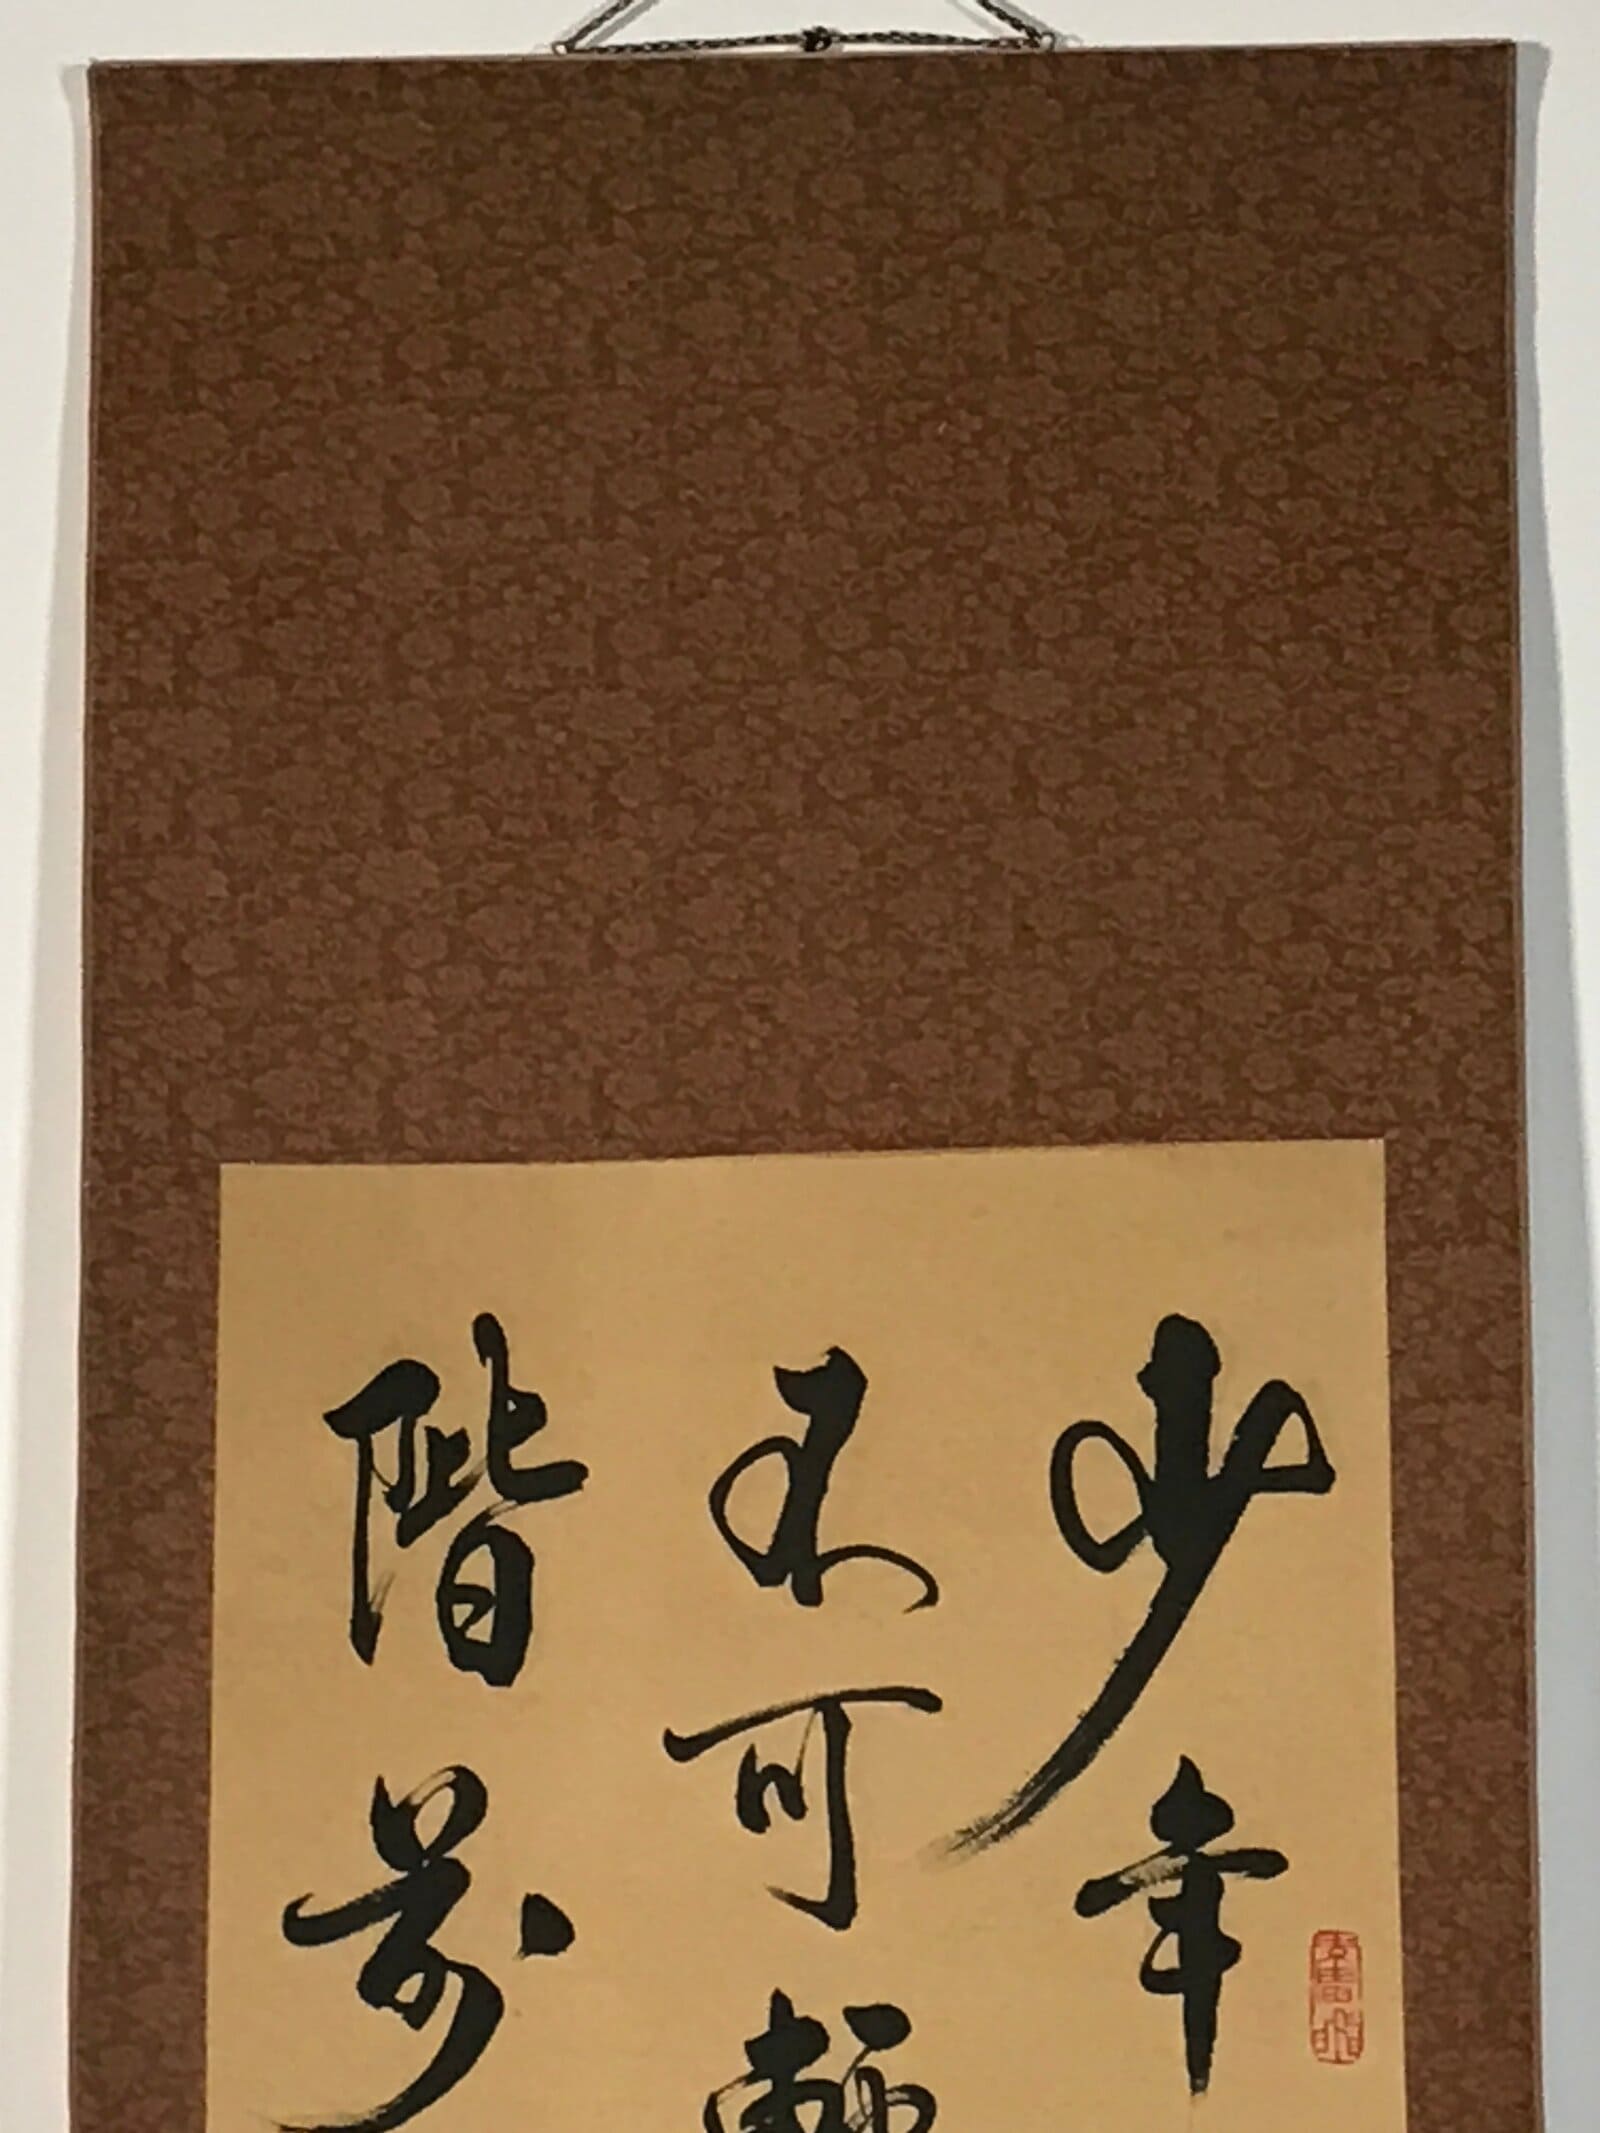 少年
不可軽
階前